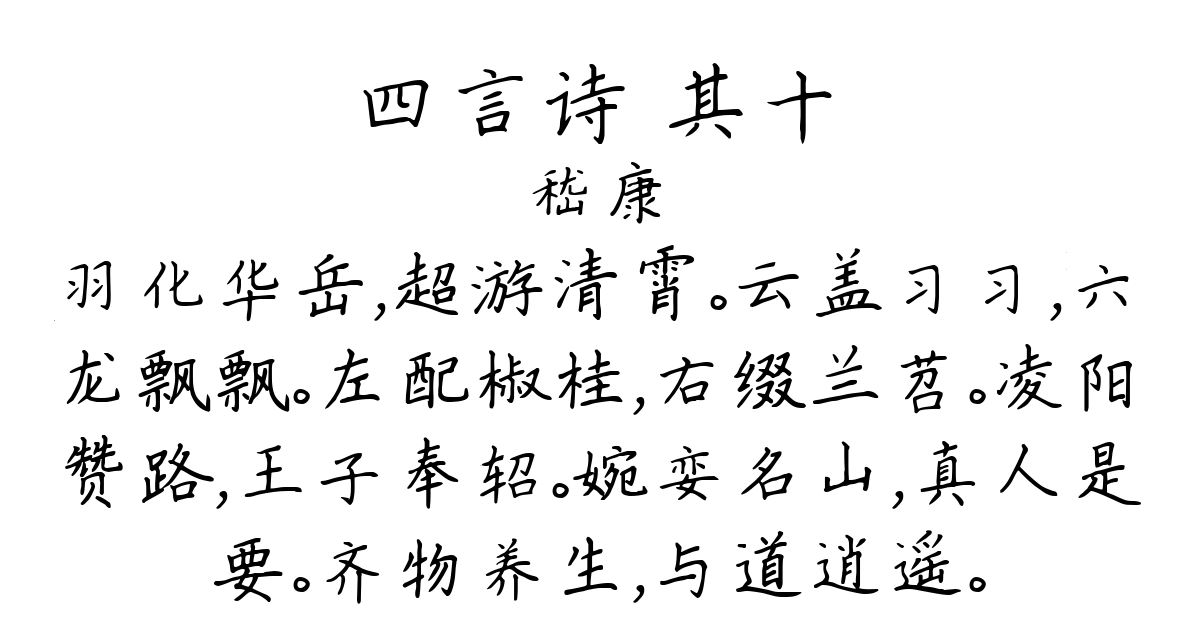 四言诗 其十
嵇康
羽化华岳,超游清霄。云盖习习,六
龙飘飘。左配椒桂,右缀兰苕。凌阳
赞路,王子奉轺。婉娈名山,真人是
要。齐物养生,与道逍遥。